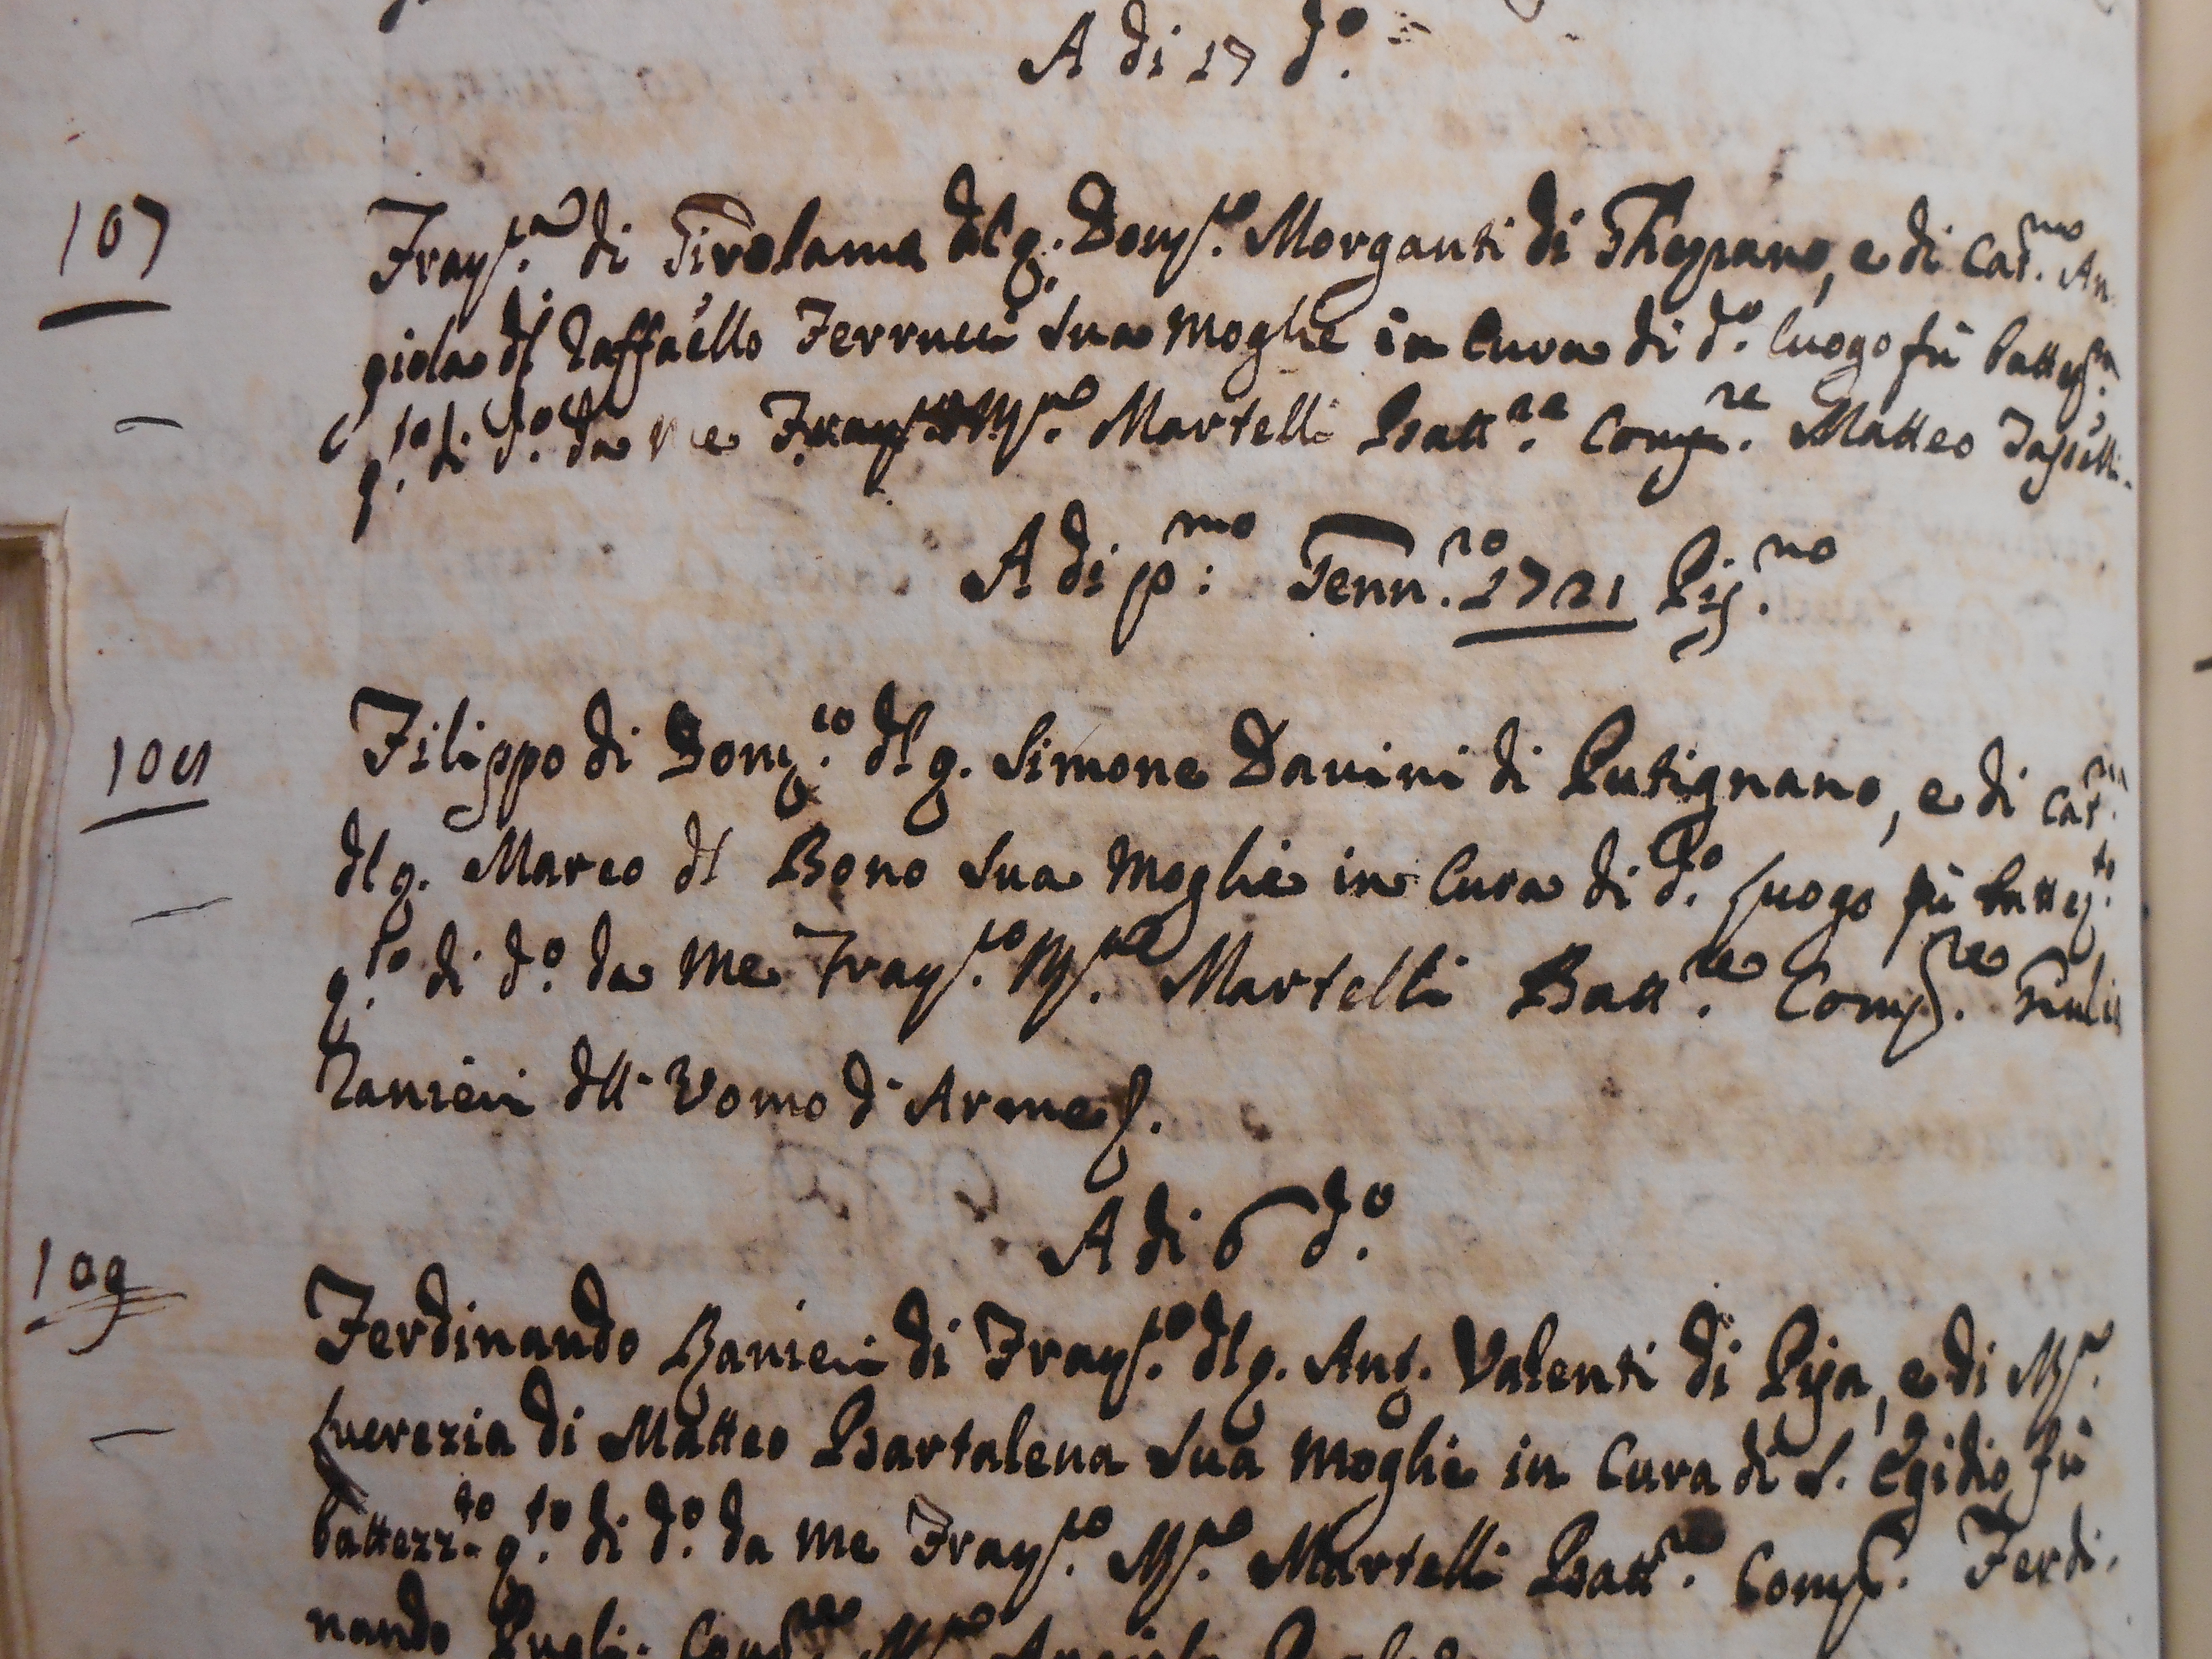 A di 17 d.o
107
Fran.ca di Girolamo del q. Dom.co Morganti di Thezzano, e di Cat.na An
giola del Raffaello Ferrucci sua Moglie in Cura di d.o luogo fù battez.ta
q.to di d.o da me Fran.co M.a Martelli Batt.re Comp.re Matteo
A di p.mo Genn.ro 1721 Pis.no
108
Filippo di Dom.co del q. Simone Davini di Putignano, e di Cat.na
del q. Marco del Bono sua Moglie in Cura di d.o luogo fù battez.to
q.to di d.o da me Fran.co M.a Martelli Batt.re Comp.re Giulio
Ranieri dell' Uomo d' Arme
A di 6 d.o
109
Ferdinando Ranieri di Fran.co del q. Ant. Valenti di Pisa, e di M.a
Lucrezia di Matteo Bartalena sua Moglie in Cura di S. Egidio fù
battezz.to q.to di d.o da me Fran.co M.a Martelli Batt.re Comp.e Ferdi-
nando M.a